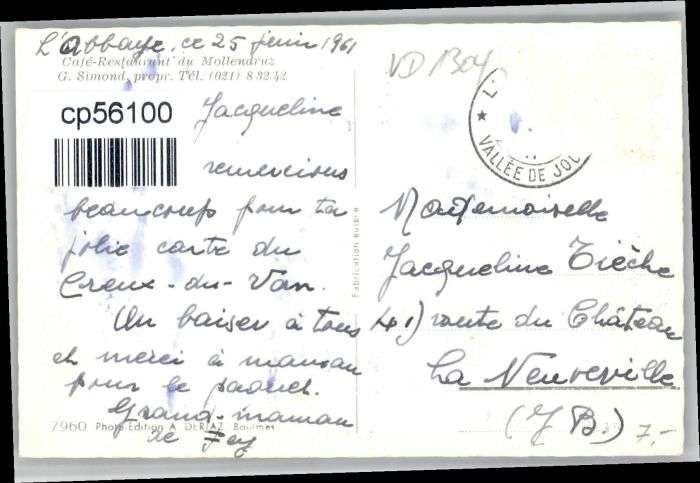 L'Abbaye, ce 25 juin 1961
Café-Restaurant du Mollendruz
G. Simond, propr. Tél. (021) 8 32 42
cp56100
Jacqueline
remercions
beaucoup pour ta
jolie carte du
Creux-du-Van.
Un baiser à tous
et merci à maman
pour le paquet.
Grand-maman
de
7960 Photo-Edition A. DERIAZ Baulmes
Fabrication suisse
VD 1304
L'
VALLÉE DE JOU
Mademoiselle
Jacqueline Tièche
41) route du Château
La Neuveville
(J B.)
7,-